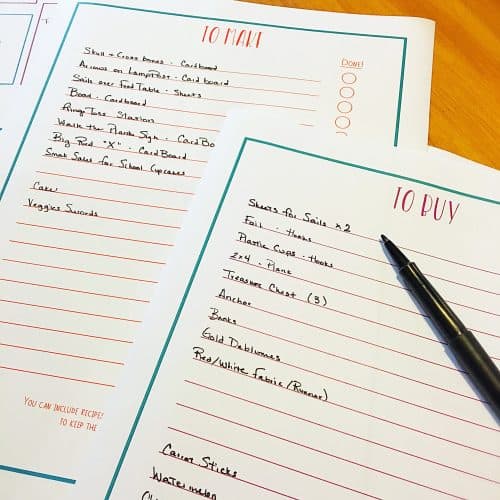 TO MAKE
DONE!
Skull + Cross bones - Cardboard
Arrows on LampPost - Cardboard
Sails over Food Table - Sheets
Boat - Cardboard
Ring Toss Station
Walk the Plank Sign - CardBo
Big Red "X" - CardBoard
Small Sails for School Cupcakes
Cake
Veggies Swords
YOU CAN INCLUDE RECIPES
TO KEEP THE
TO BUY
Sheets for Sails x2
Foil - Hooks
Plastic Cups - Hooks
2x4 - Plank
Treasure Chest (3)
Anchor
Banks
Gold Debloums
Red/White Fabric (Runner)
Carrot Sticks
Watermelon